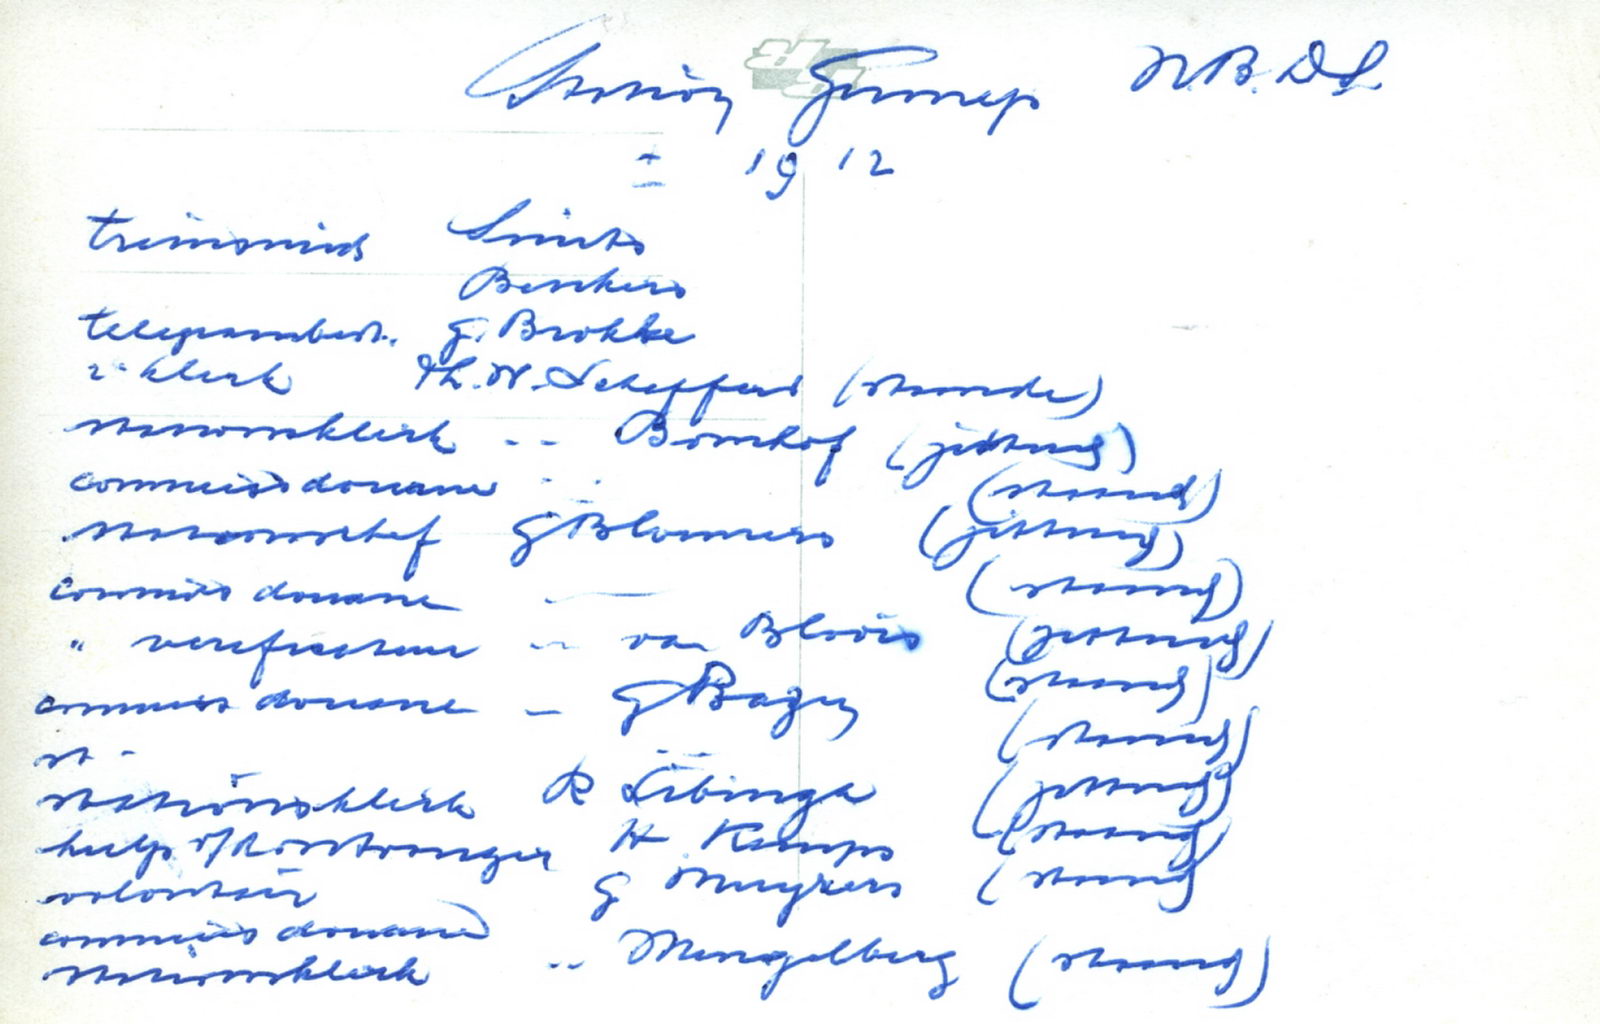 Station Gennep N.B.D.S.
± 1912
treinsmid Smits
Benkers
telegrambest. G. Brokke
2e klerk Th. W. Scheffers (staande)
stationsklerk -- Bomhof (zittend)
commies douane -- (staand)
stationschef G Blommers (zittend)
commies douane - (staand)
" verificateur -- van Blois (zittend)
commies douane - G (staand)
st - (staand)
stationsklerk R Libinga (zittend)
hulp H. Kamps (staand)
volontair G Muyzers (staand)
commies douane
stationsklerk -- Mengelberg (staand)